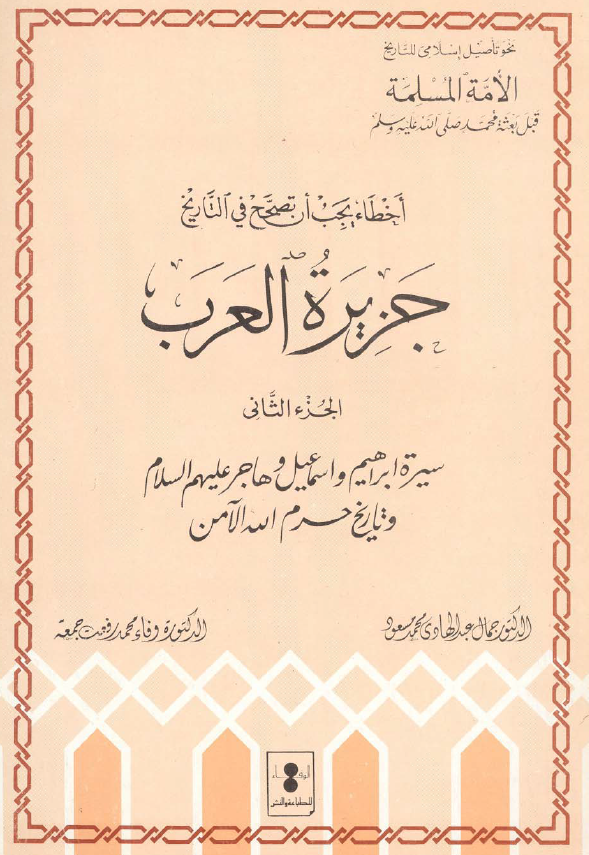 نحو تأصيل إسلامى للتاريخ
الأمة المسلمة
قبل بعثة محمد صلى الله عليه وسلم
أخطاء يجب أن تصحح في التاريخ
جزيرة العرب
الجزء الثانى
سيرة ابراهيم واسماعيل وهاجر عليهم السلام
وتاريخ حرم الله الآمن
الدكتور جمال عبد الهادى محمد مسعود
الدكتورة وفاء محمد رفعت جمعة
الوفاء
للطباعة والنشر